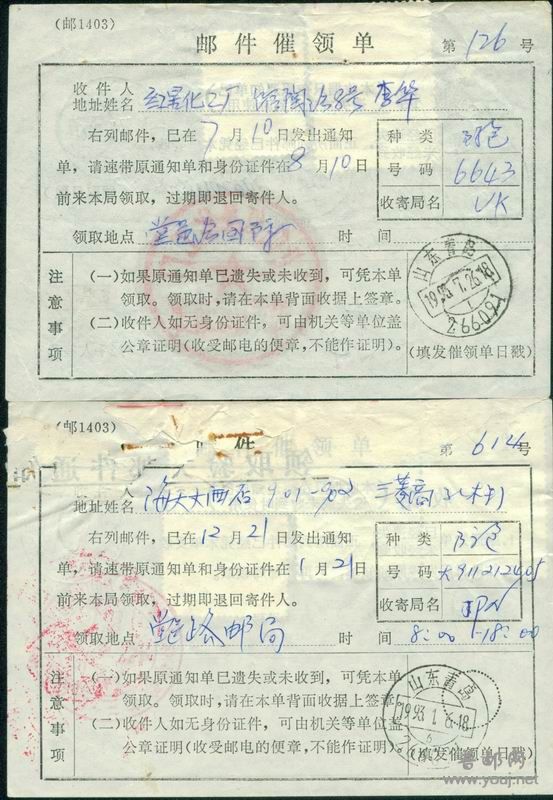 (邮1403)
邮件催领单 第126号
收件人
地址姓名 红星化工厂 馆陶路8号 李华
右列邮件，已在7月10日发出通知
单，请速带原通知单和身份证件在8月10日
前来本局领取，过期即退回寄件人。
种类
号码 6643
收寄局名 UK
领取地点 时间
注意事项
(一)如果原通知单已遗失或未收到，可凭本单
领取。领取时，请在本单背面收据上签章。
(二)收件人如无身份证件，可由机关等单位盖
公章证明(收受邮电的便章，不能作证明)。
山东青岛
1993.7.26.18
266091
(填发催领单日戳)
(邮1403)
件 第614号
人
地址姓名 海天大酒店 901-902 三菱商
右列邮件，已在12月21日发出通知
单，请速带原通知单和身份证件在1月21日
前来本局领取，过期即退回寄件人。
种类
号码 大911212405
收寄局名
领取地点 邮局 时间 8:00-18:00
注意事项
(一)如果原通知单已遗失或未收到，可凭本单
领取。领取时，请在本单背面收据上签章
(二)收件人如无身份证件，可由机关等单位盖
公章证明(收受邮电的便章，不能作证明)。
山东青岛
(填发催领单日戳)
www.youj.net